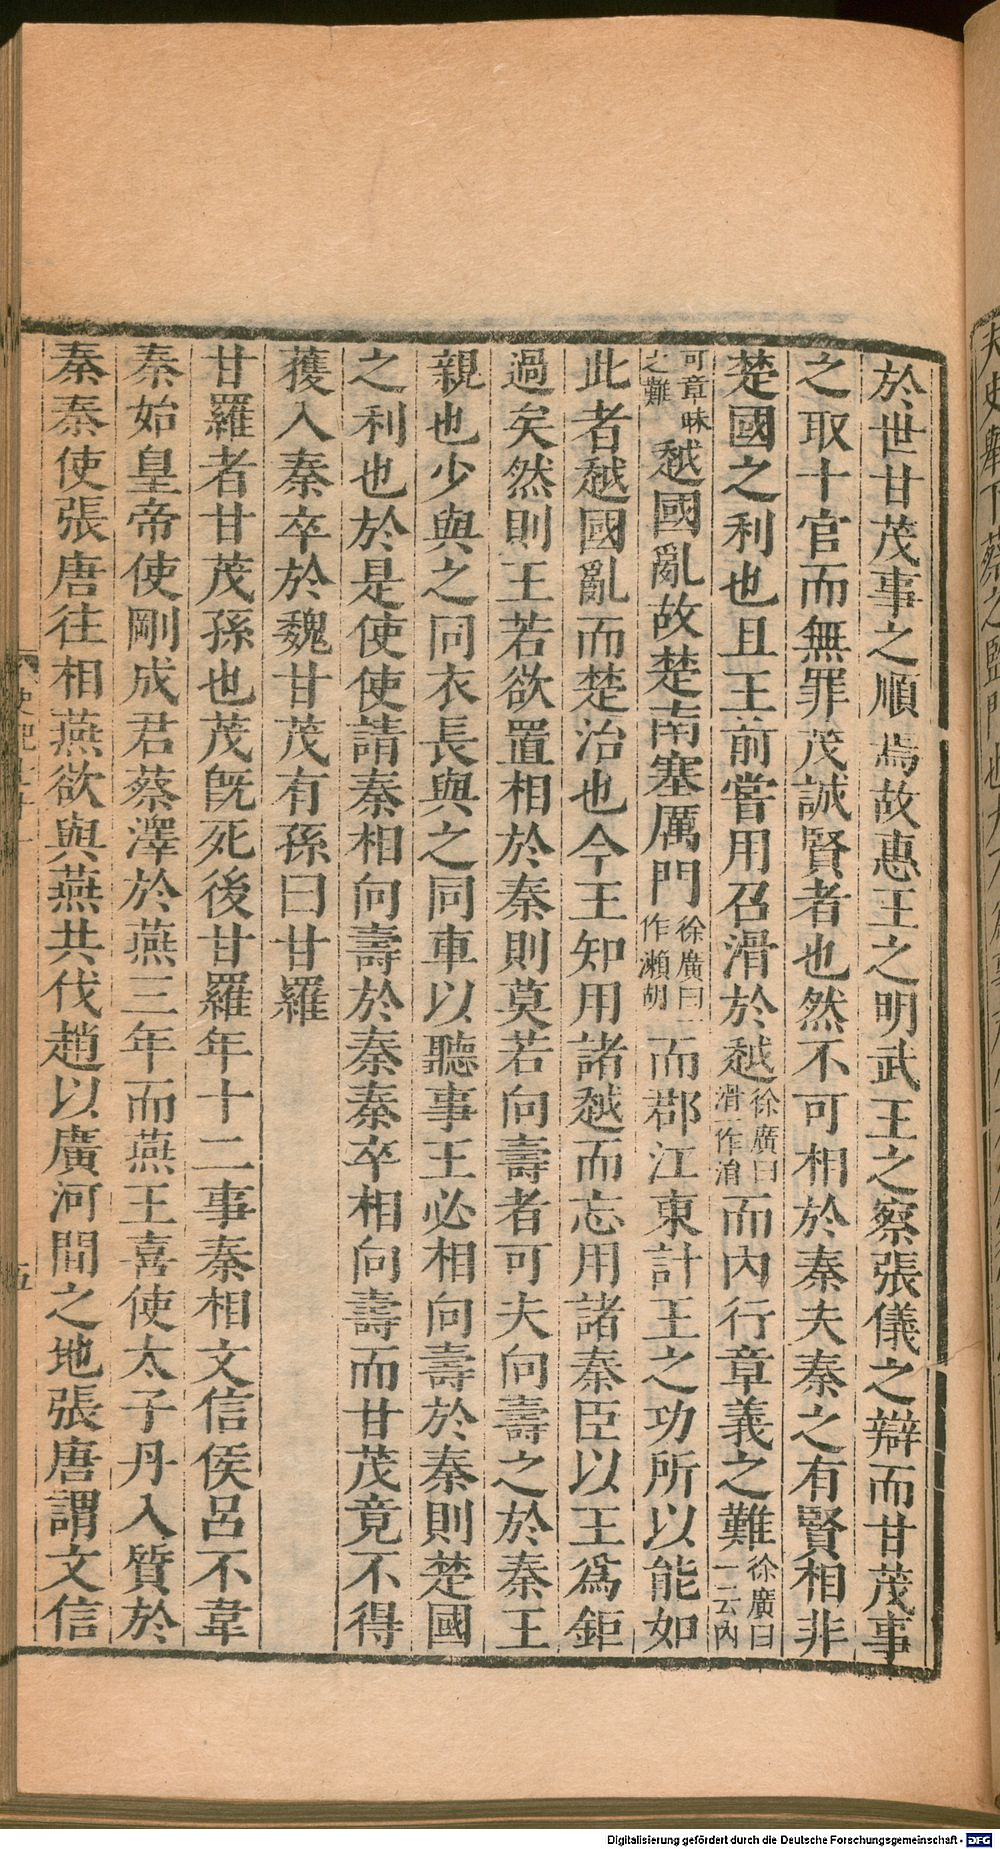 於世甘茂事之順焉故惠王之明武王之察張儀之辯而甘茂事
之取十官而無罪茂誠賢者也然不可相於秦夫秦之有賢相非
楚國之利也且王前嘗用召滑於越徐廣曰滑一作涓而內行章義之難徐廣曰一云內
可章昧之難越國亂故楚南塞厲門徐廣曰一作瀨胡而郡江東計王之功所以能如
此者越國亂而楚治也今王知用諸越而忘用諸秦臣以王爲鉅
過矣然則王若欲置相於秦則莫若向壽者可夫向壽之於秦王
親也少與之同衣長與之同車以聽事王必相向壽於秦則楚國
之利也於是使使請秦相向壽於秦秦卒相向壽而甘茂竟不得
蒦入秦卒於魏甘茂有孫曰甘羅
甘羅者甘茂孫也茂旣死後甘羅年十二事秦相文信侯呂不韋
秦始皇帝使剛成君蔡澤於燕三年而燕王喜使太子丹入質於
秦秦使張唐往相燕欲與燕共伐趙以廣河間之地張唐謂文信
五
Digitalisierung gefördert durch die Deutsche Forschungsgemeinschaft - DFG